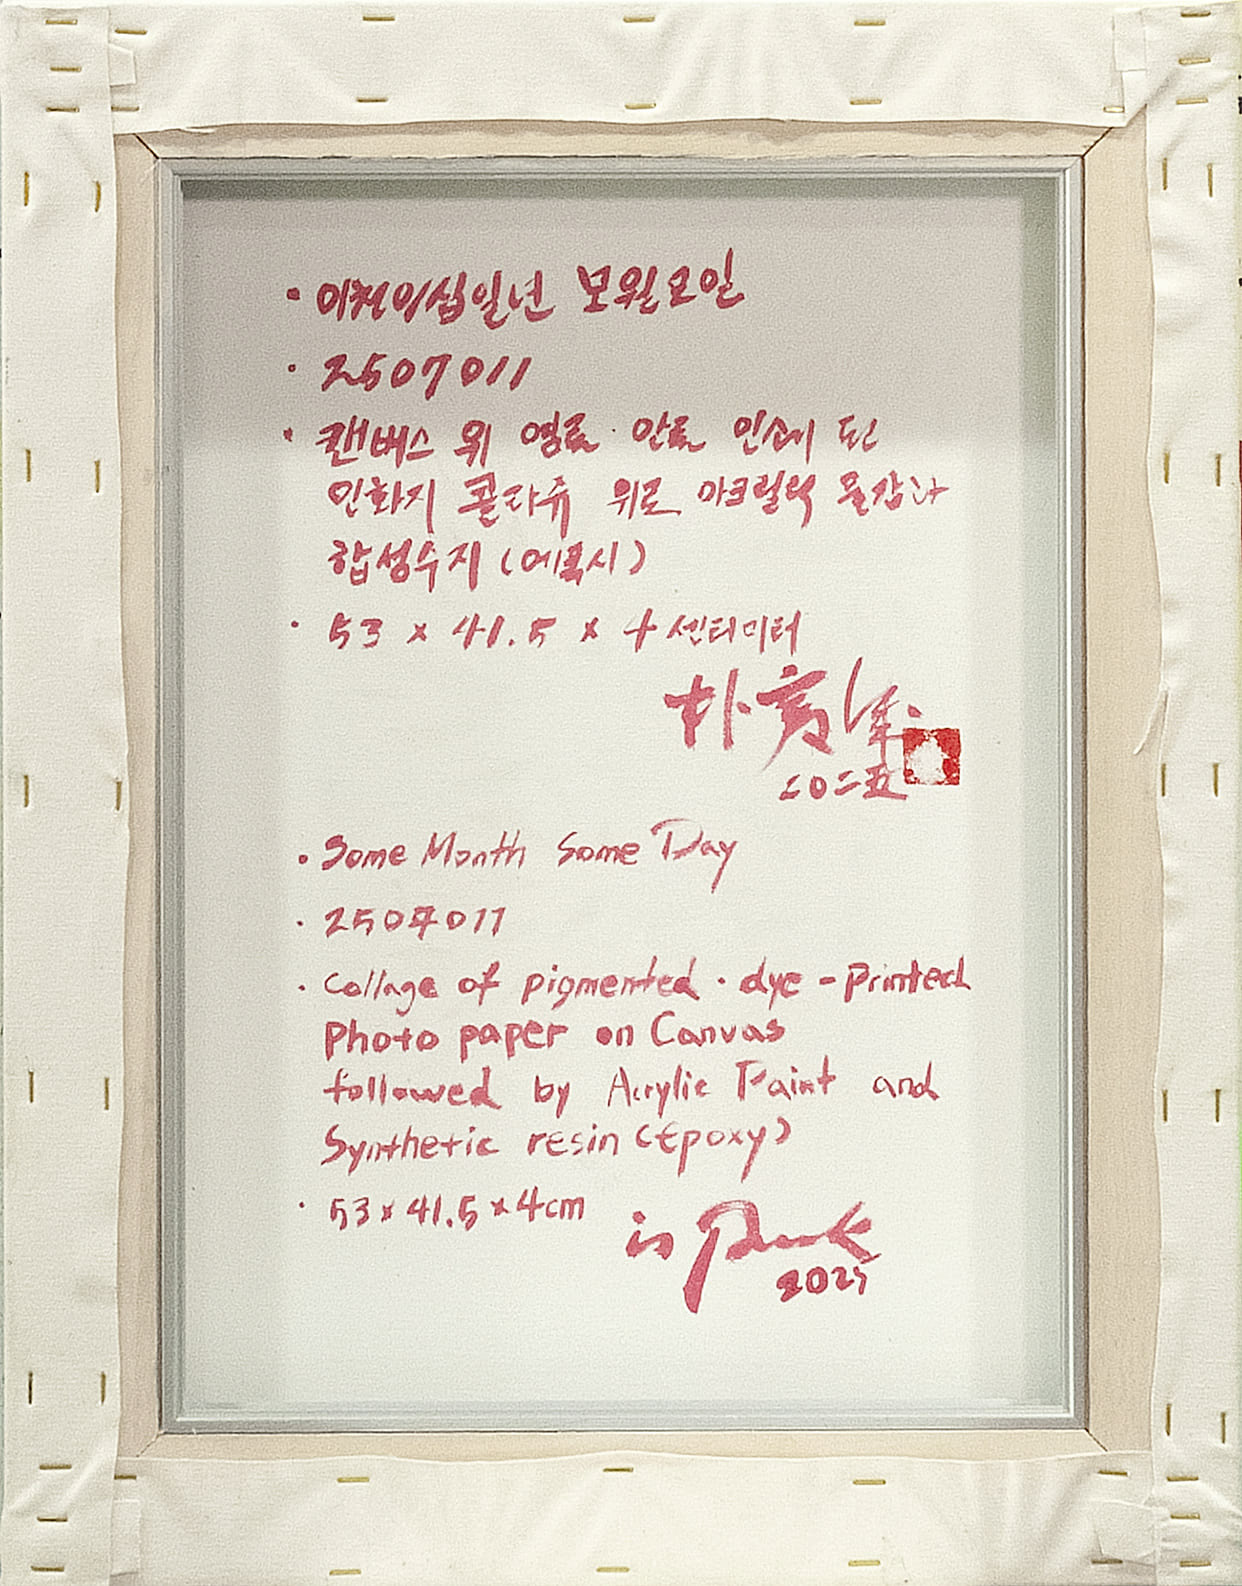 · 이천이십일년 모월모일
· 2507011
· 캔버스 위 염료·안료 인쇄 된
인화지 콜라쥬 위로 아크릴릭 물감과
합성수지 (에폭시)
· 53 x 41.5 x 4 센티미터
朴
二〇二五
· Some Month Some Day
· 2507011
· Collage of pigmented · dye - printed
Photo paper on Canvas
followed by Acrylic Paint and
Synthetic resin (Epoxy)
· 53 x 41.5 x 4cm
is Park
2025